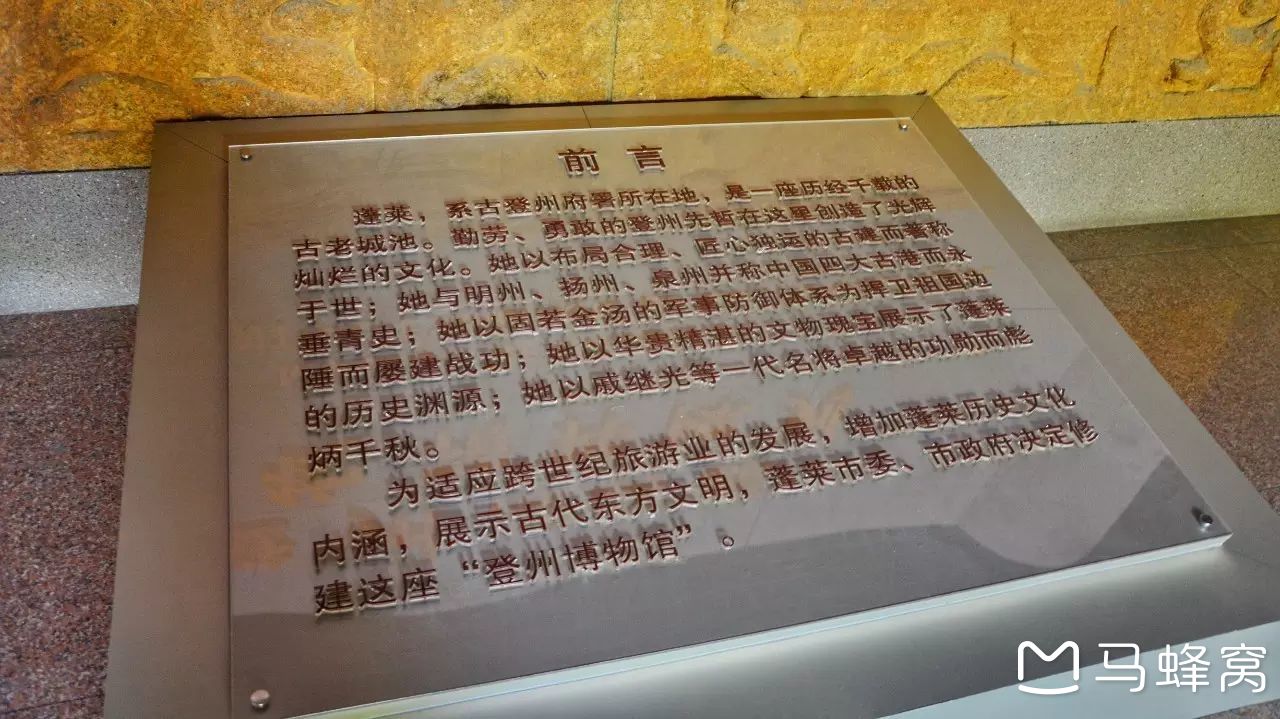 前言
蓬莱，系古登州府署所在地，是一座历经千载的
古老城池。勤劳、勇敢的登州先哲在这里创造了光辉
灿烂的文化。她以布局合理、匠心独运的古建而著称
于世；她与明州、扬州、泉州并称中国四大古港而永
垂青史；她以固若金汤的军事防御体系为捍卫祖国边
陲而屡建战功；她以华贵精湛的文物瑰宝展示了蓬莱
的历史渊源；她以戚继光等一代名将卓越的功勋而彪
炳千秋。
为适应跨世纪旅游业的发展，增加蓬莱历史文化
内涵，展示古代东方文明，蓬莱市委、市政府决定修
建这座“登州博物馆”。
马蜂窝